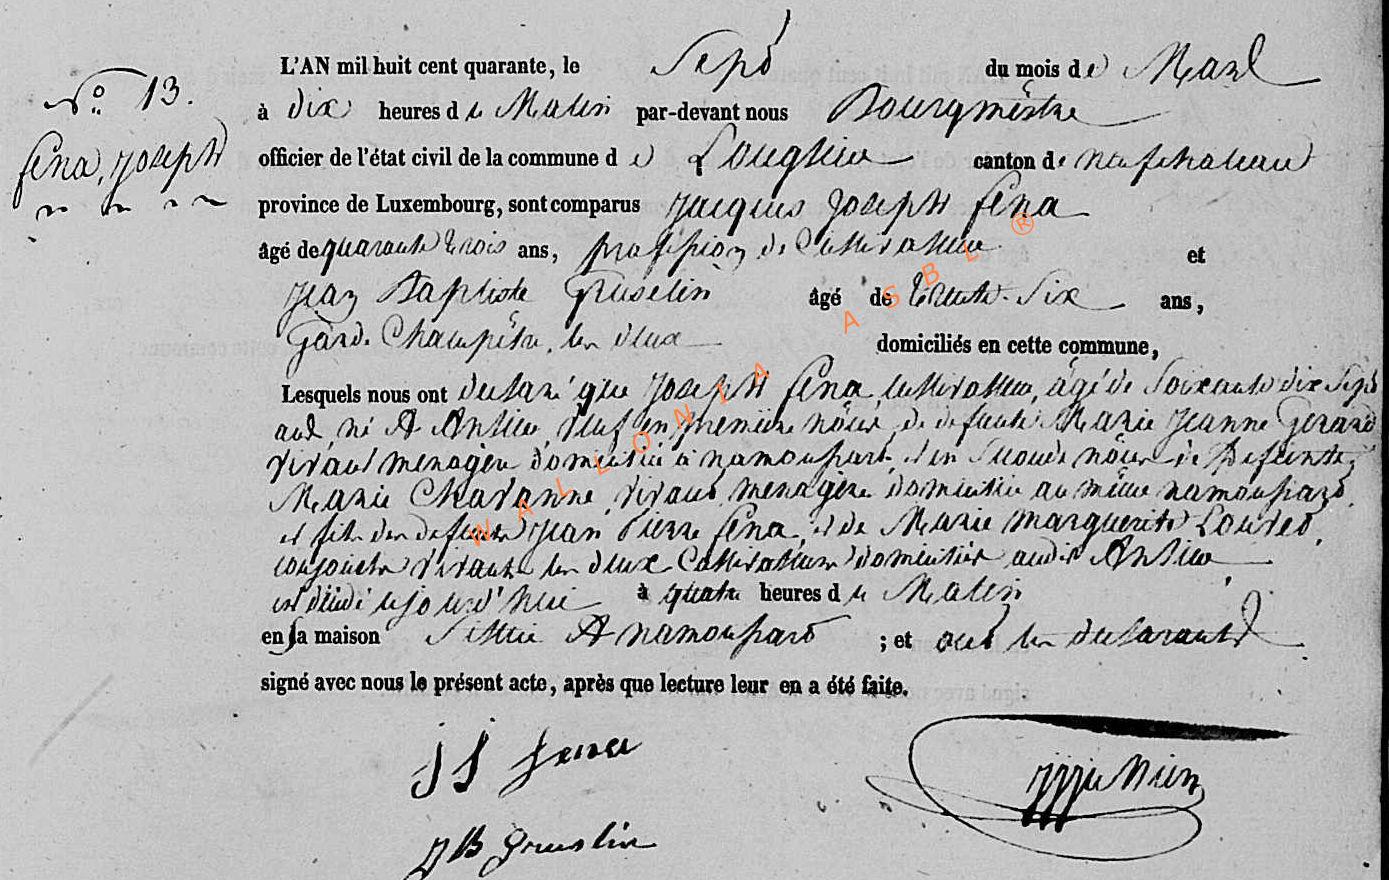 N° 13.
fena, Joseph
L'AN mil huit cent quarante, le Sept du mois de Mars
à dix heures du Matin par-devant nous Bourgmêstre
officier de l'état civil de la commune de Longlier canton de neufchateau
province de Luxembourg, sont comparus Jacques Joseph fena
âgé de quarante trois ans, profession de Cultivateur et
Jean Baptiste Gruselin âgé de trente-Six ans,
Garde Champêtre, les deux domiciliés en cette commune,
Lesquels nous ont declaré que Joseph fena, cultivateur, âgé de Soixante dix Sept
ans, né A Anlier, veuf en premiere nôce, de defunte Marie Jeanne Gerard
vivant menagere domiciliée à namoussart, et en Seconde nôce de Defunte
Marie Chavanne, vivant menagère domiciliée au même namoussart,
et fils des defunts Jean Pierre fena, et de Marie Marguerite
conjoints vivants les deux Cultivateurs domiciliés audit Anlier
est décédé ujourd'hui à quatre heures du Matin
en sa maison Située A namoussart ; et ont les declarants
signé avec nous le présent acte, après que lecture leur en a été faite.
JJ fena
JB Gruslin
WALLONIA ASBL ®